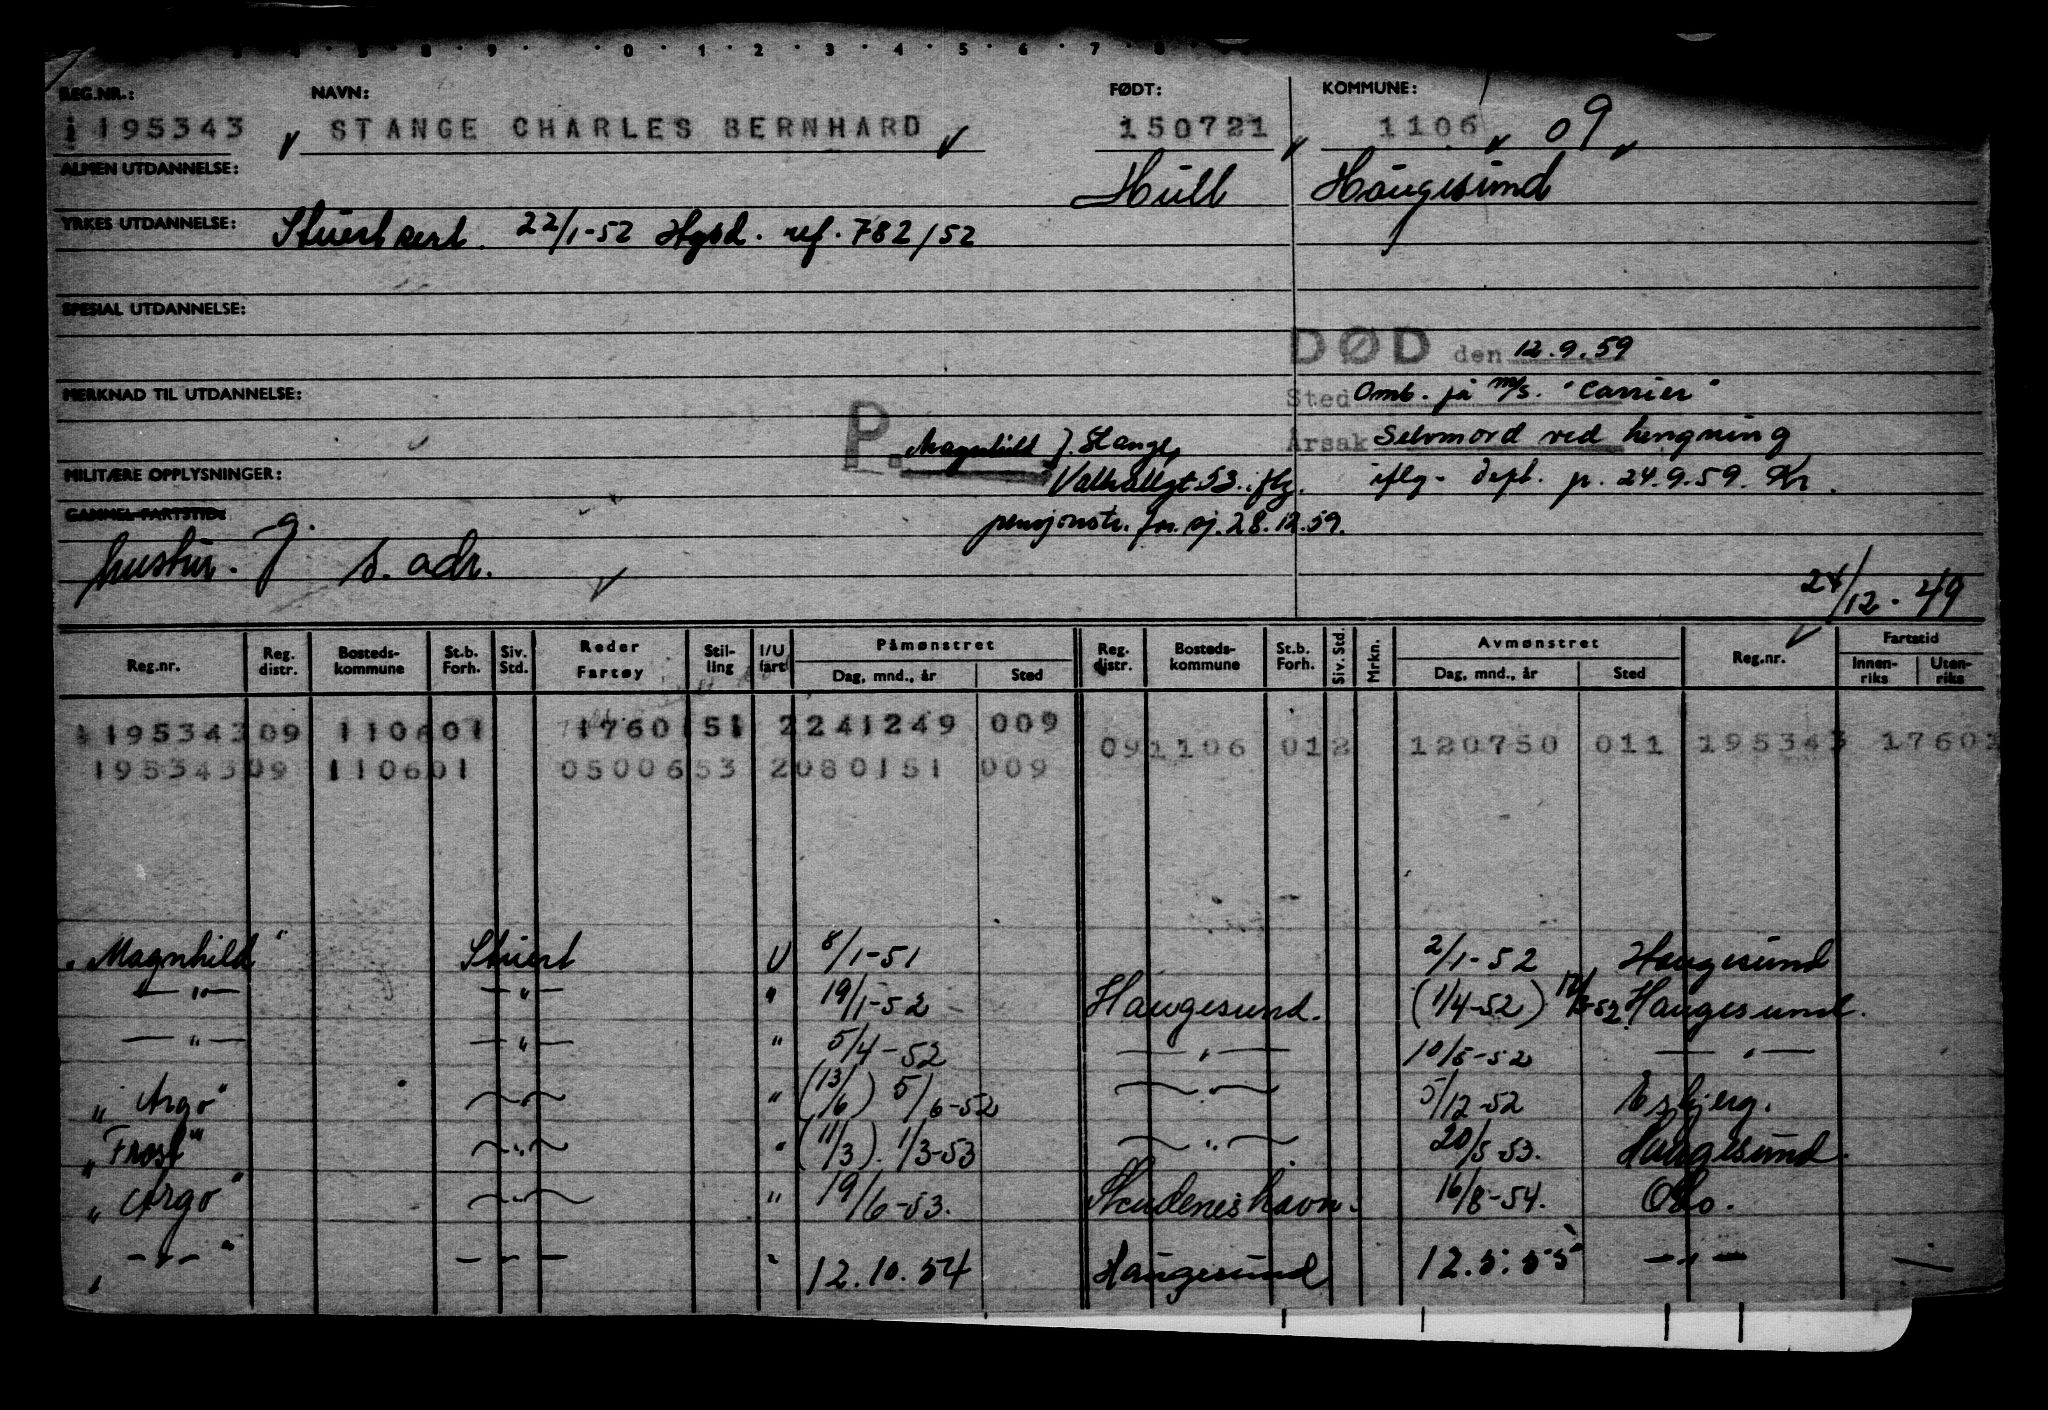 REG.NR.: NAVN: FØDT: KOMMUNE:
195343 STANGE CHARLES BERNHARD 150721 1106 09
ALMEN UTDANNELSE: Hull Haugesund
YRKES UTDANNELSE: Stuert sert. 22/1-52 Hgsd. ref. 782/52
SPESIAL UTDANNELSE:
DØD den 12.9.59
MERKNAD TIL UTDANNELSE: Sted Omb. på m/s. "Carrier"
P. Magnhild J. Stange, Årsak Selvmord ved hengning
MILITÆRE OPPLYSNINGER: Valhallgt. 53. iflg. iflg. dept. p. 24.9.59. Kr.
GAMMEL FARTSTID: pensjonstr. for sj. 28.12.59.
hustru. g. s. adr.
24/12-49
Reg.nr. Reg. distr. Bosteds-kommune St.b. Forh. Siv. Std. Reder Fartøy Stil-ling I/U fart Påmønstret Dag, mnd., år Sted Reg. distr. Bosteds-kommune St.b. Forh. Siv. Std. Mrkn. Avmønstret Dag, mnd., år Sted Reg.nr. Fartstid Innen-riks Uten-riks
195343 09 1106 01 1760151 2 241249 009
09 1106 012 120750 011 195343 1760
195343 09 1106 01 0500653 2 080151 009
"Magnhild" Stuert U 8/1-51 2/1-52 Haugesund
—"— —"— " 19/1-52 Haugesund. (1/4-52) Haugesund.
—"— —"— " 5/4-52 —"— 10/5-52 —"—
"Argo" —"— " (13/6) 5/6-52 —"— 5/12-52 Esbjerg.
"Frost" —"— " (11/3). 1/3-53 —"— 20/5-53. Haugesund.
"Argo" —"— " 19/6-53. Skudeneshavn. 16/8-54. Oslo.
—"— —"— " 12.10.54 Haugesund 12.5.55 —"—